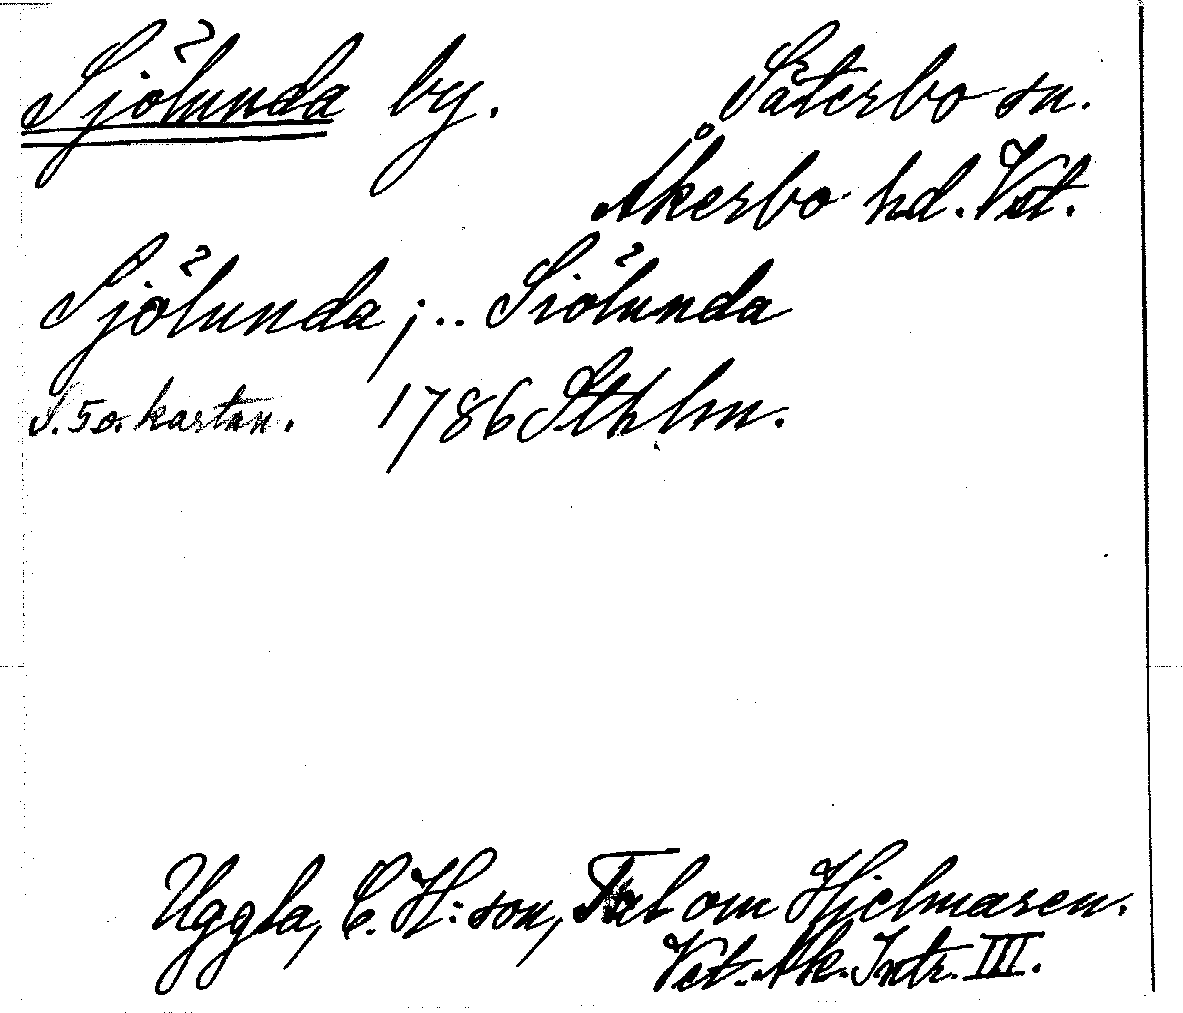 Sjölunda by. Säterbo sn.
Åkerbo hd. Vst.
Sjölunda ; .. Siölunda
S. 50. kartan. 1786 Sthlm.
Uggla, C. H:son, Tal om Hjelmaren.
Vet. Ak. Intr. III.